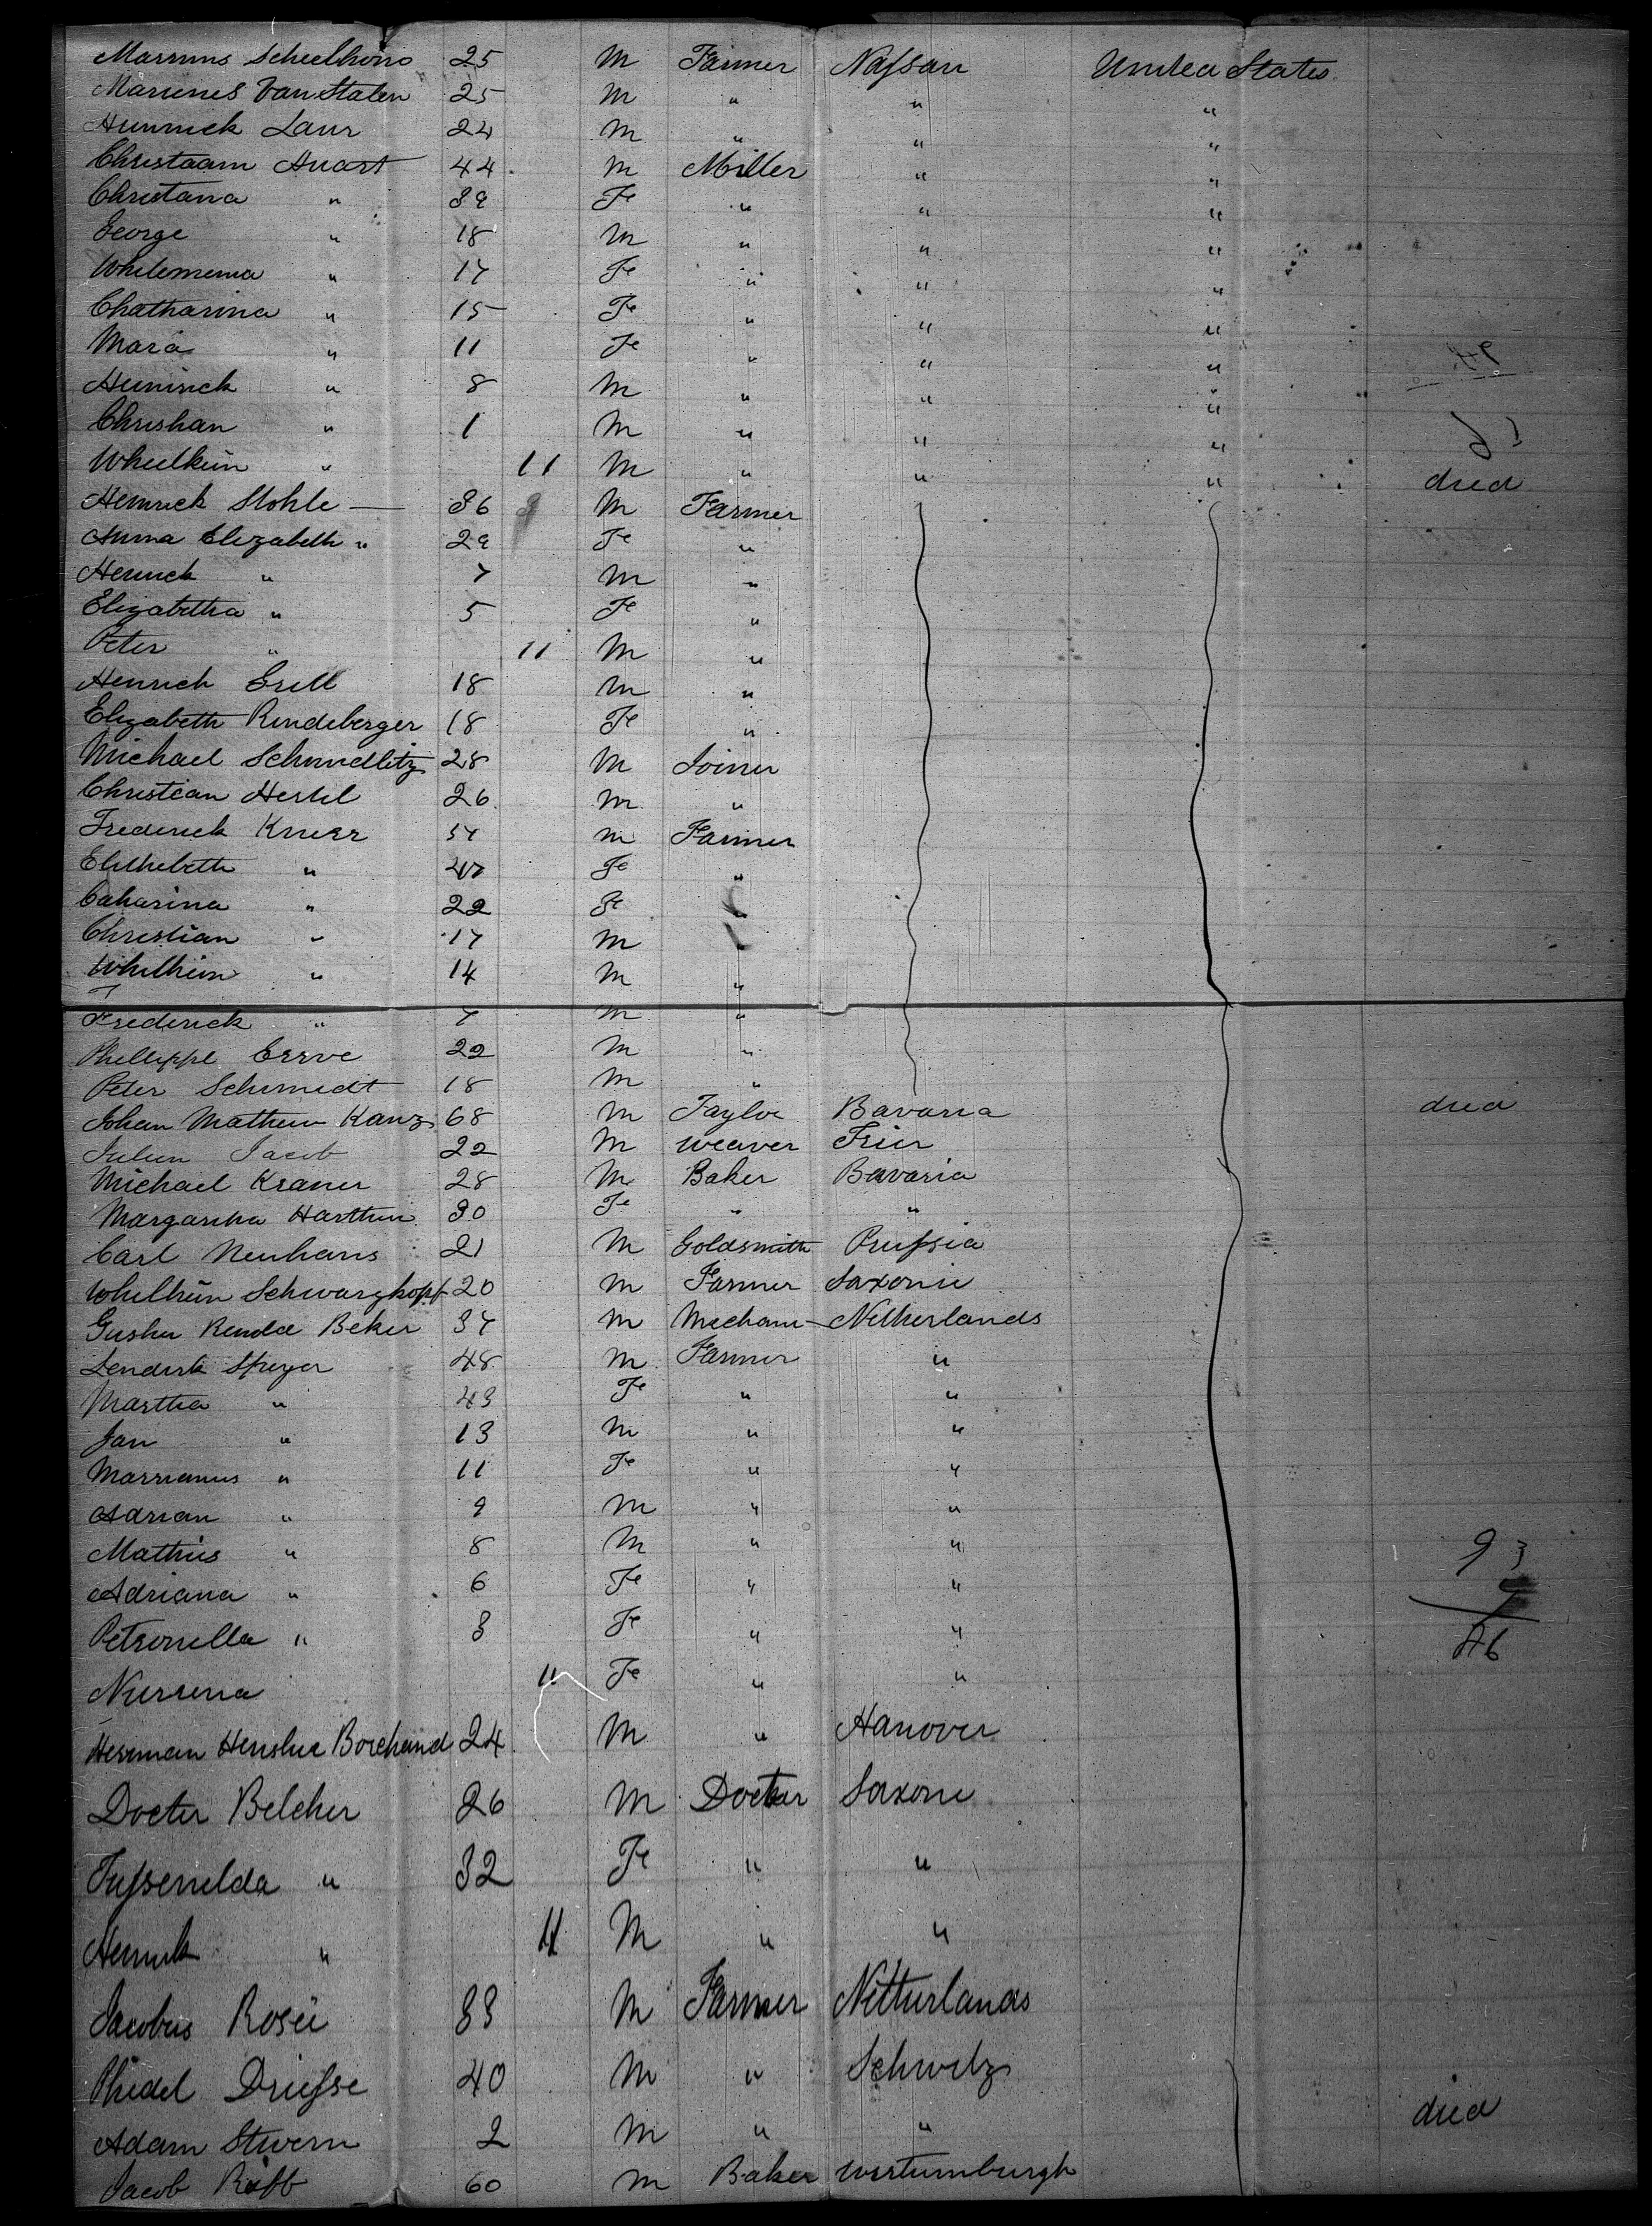 Marinus Scheelhoro 25 M Farmer Nassau United States
Marienes Van Stalen 25 M " " "
Hunnick Laur 24 M " " "
Christaam Huast 44 M Miller " "
Christana " 39 Fe " " "
George " 18 M " " "
Whilemena " 17 Fe " " "
Chatharina " 15 Fe " " "
Mara " 11 Fe " " "
Heninick " 8 M " " "
Christian " 1 M " " "
Wheelheim " 11 M " " " died
Heinrick Stohle — 36 M Farmer
Anna Elizabeth " 29 Fe "
Henrick " 7 M "
Elizabetha " 5 Fe "
Peter " 11 M "
Henrich Grill 18 M "
Elizabeth Rindeberger 18 Fe "
Michael Schmidlitz 28 M Joiner
Christian Hestel 26 M "
Frederick Knerr 54 M Farmer
Elithebeth " 47 Fe "
Caharina " 22 Fe "
Christian " 17 M "
Whilheim " 14 M "
Frederick " 7 M "
Phellippe Errve 22 M "
Peter Schmidt 18 M "
Johan Mathew Kanz 68 M Taylor Bavaria died
Julien Jacob 22 M Weaver Trier
Michael Kraner 28 M Baker Bavaria
Margaretha Harthun 30 Fe " "
Carl Neuhaus 21 M Goldsmith Prussia
Whilheim Schwarzkopf 20 M Farmer Saxonie
Gusher Renda Beker 37 M Mechanic Netherlands
Lendert Speyer 48 M Farmer "
Martha " 43 Fe " "
Jan " 13 M " "
Marrianus " 11 Fe " "
Adrian " 9 M " "
Mathies " 8 M " "
Adriana " 6 Fe " "
Petronella " 3 Fe " "
Nursena 11 Fe " "
Herrman Henslue Borchand 24 M " Hanover
Docter Belcher 26 M Docter Saxonie
Tussenelda " 32 Fe " "
Henrick " 11 M " "
Jacobus Rosei 33 M Farmer Netturlands
Phidel Driesse 40 M " Schwitz
Adam Stwern 2 M " " died
Jacob Rabb 60 M Baker Wurtumburgh